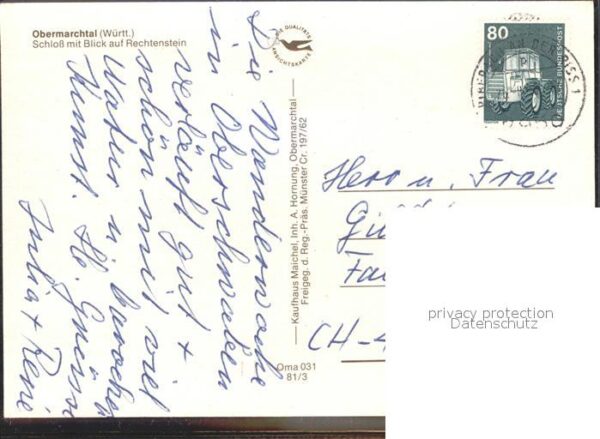 Obermarchtal (Württ.)
Schloß mit Blick auf Rechtenstein
DIE QUALITÄTS
ANSICHTSKARTE
80
DEUTSCHE BUNDESPOST
Die Wanderwoche
in Oberschwaben
verläuft gut +
schön mit viel
Natur u. barocker
Kunst. Hz. Grüsse
Julia + René
Kaufhaus Maichel, Inh. A. Hornung, Obermarchtal
Freigeg. d. Reg.-Präs. Münster Cr. 197/62
Oma 031
81/3
Herr u. Frau
CH-4
privacy protection
Datenschutz